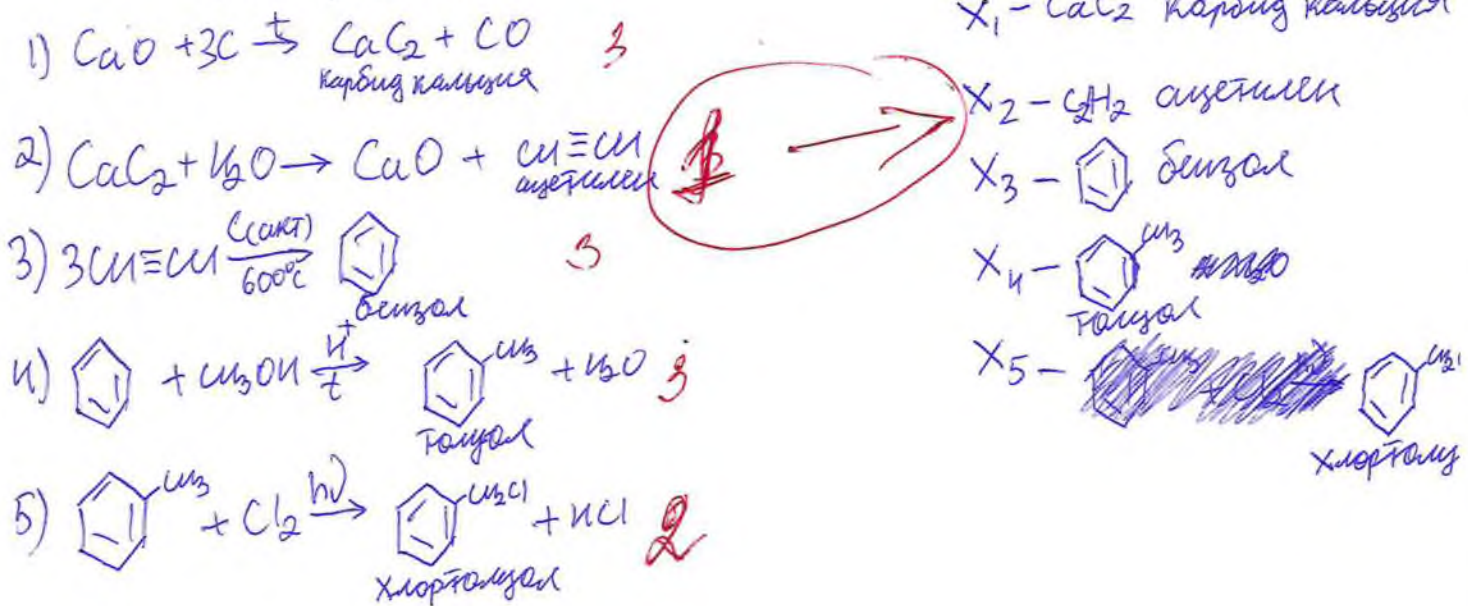 1) CaO + 3C →t CaC2 + CO 3
карбид кальция
2) CaC2 + H2O → CaO + CH≡CH 1 →
ацетилен
3) 3CH≡CH C(акт) 600°C → 3
бензол
4) + CH3OH H+ t → CH3 + H2O 3
толуол
5) CH3 + Cl2 hν → CH2Cl + HCl 2
хлортолуол
X1 – CaC2 карбид кальция
X2 – C2H2 ацетилен
X3 – бензол
X4 – CH3
толуол
X5 – CH2
хлортолу